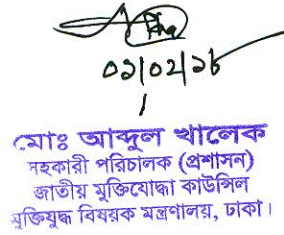 ০১/০২/১৬
মোঃ আব্দুল খালেক
সহকারী পরিচালক (প্রশাসন)
জাতীয় মুক্তিযোদ্ধা কাউন্সিল
মুক্তিযুদ্ধ বিষয়ক মন্ত্রণালয়, ঢাকা।